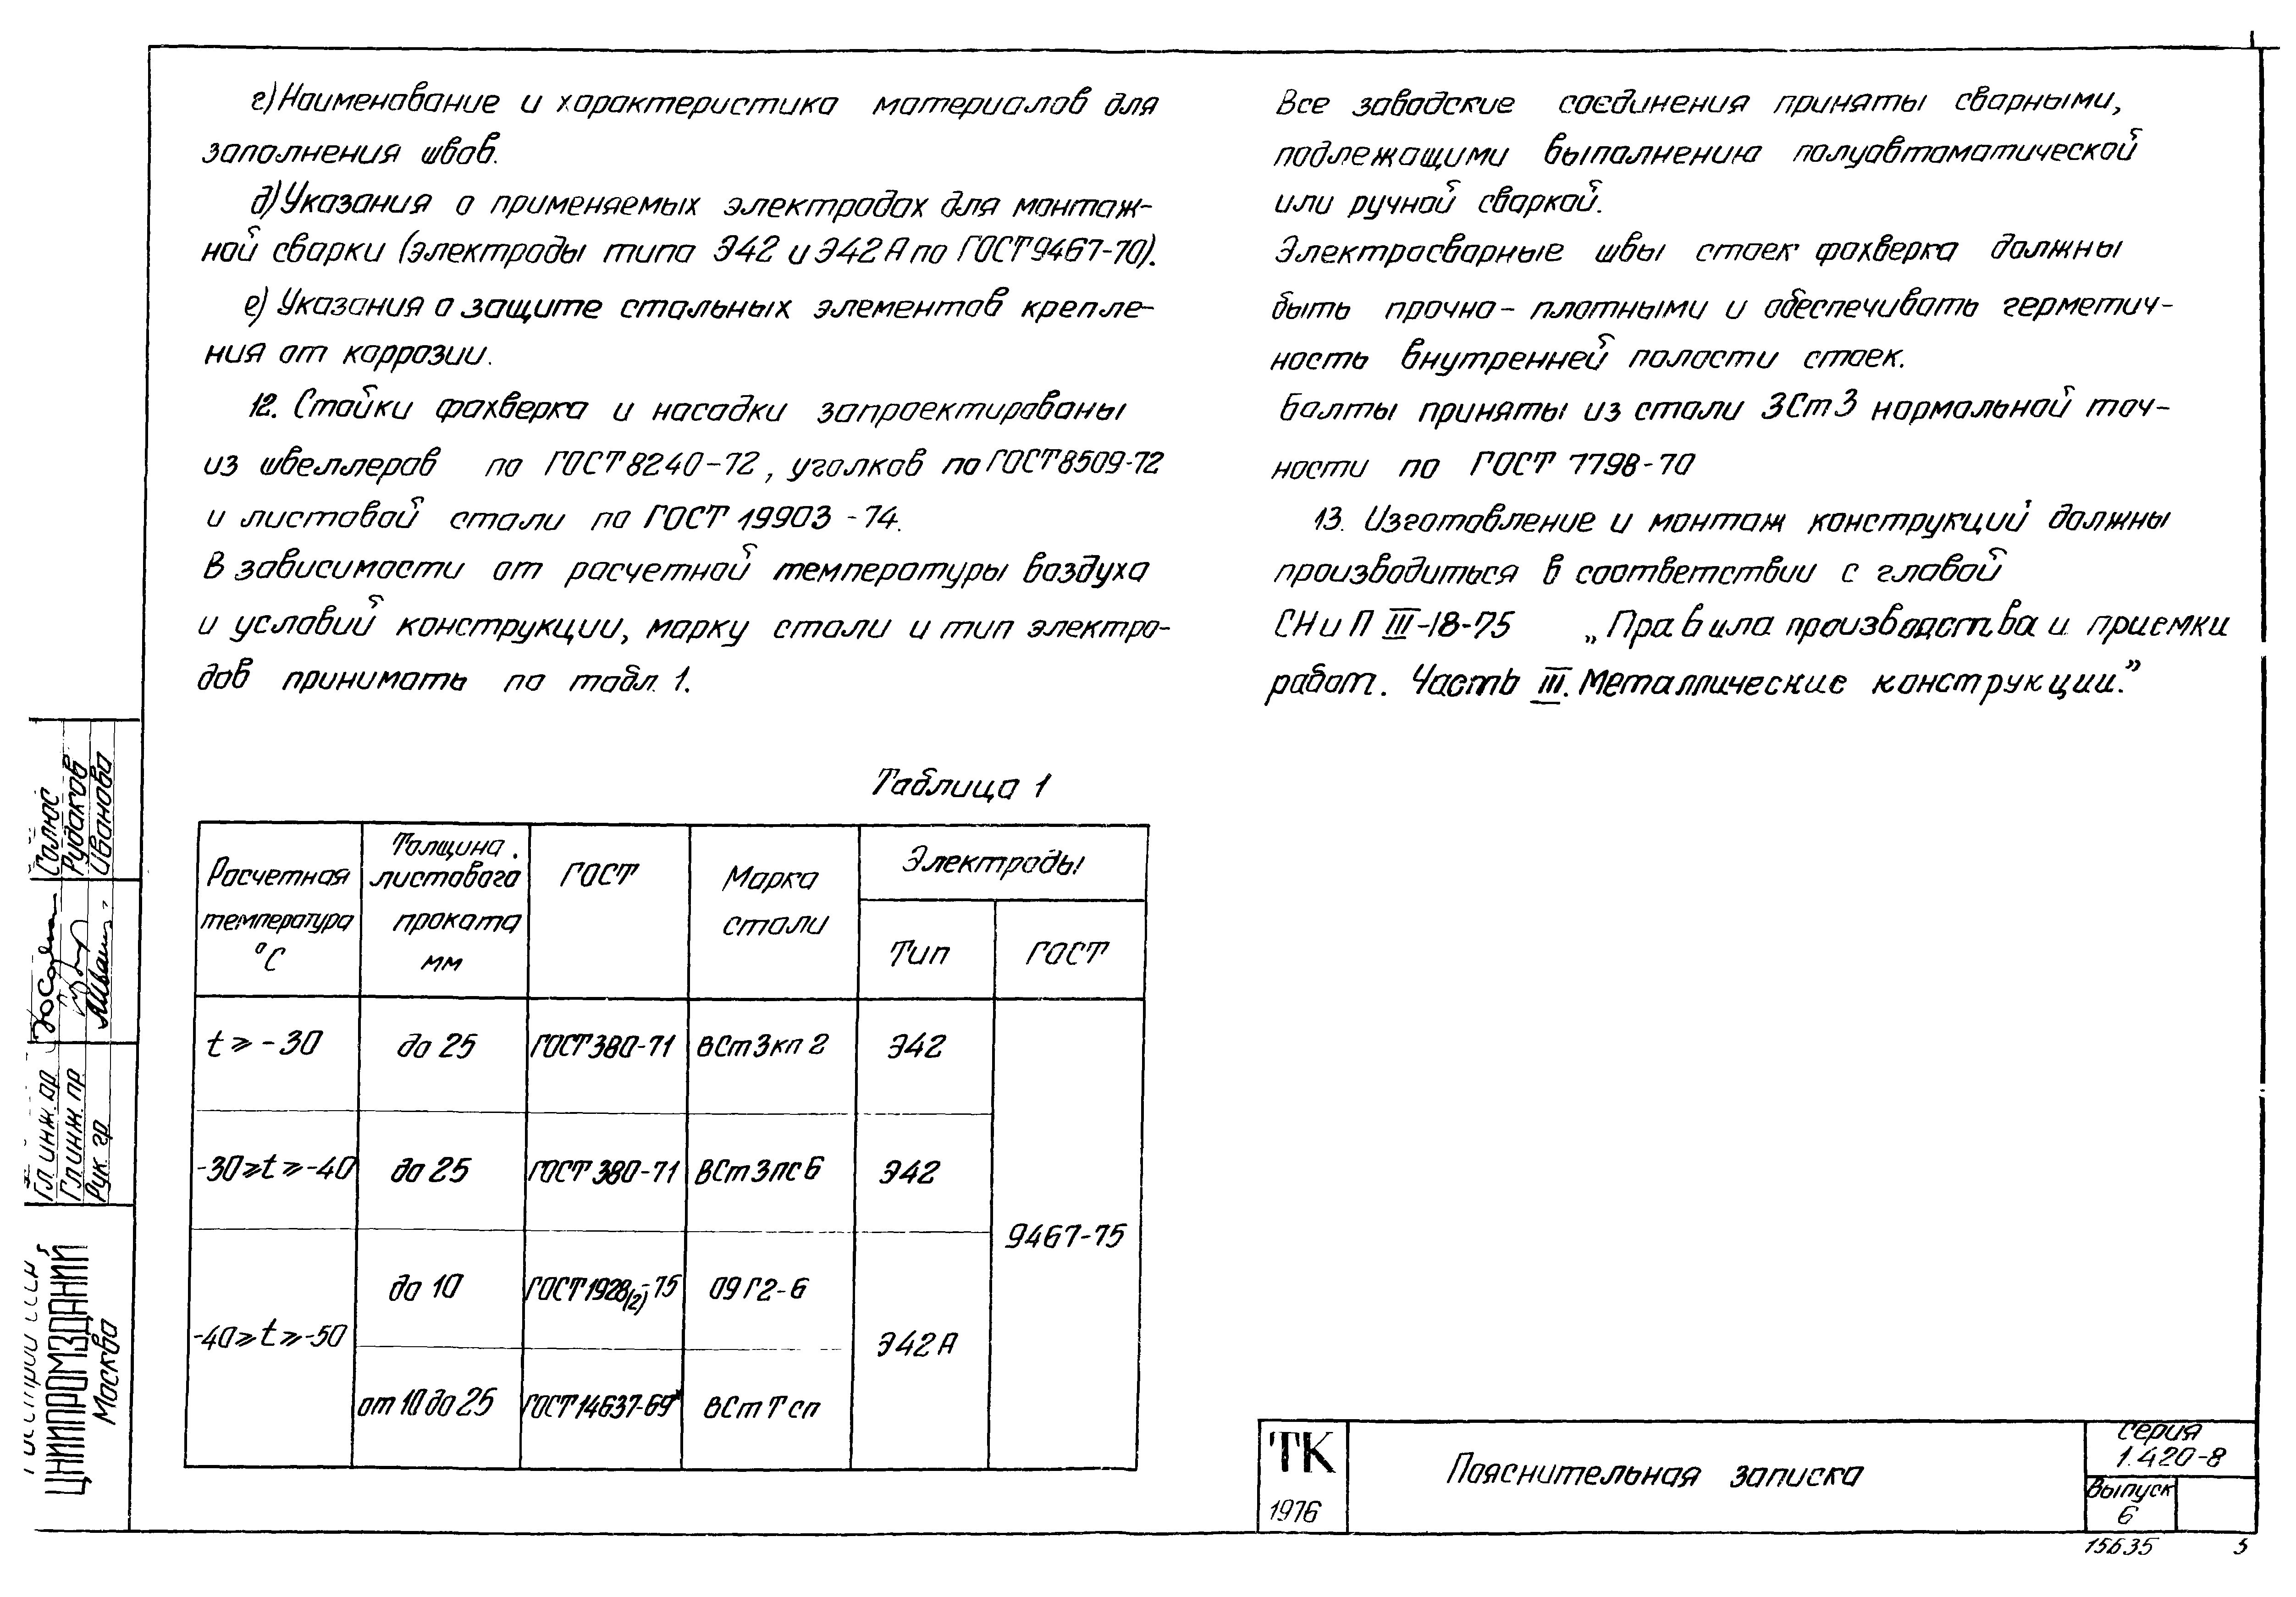 г) Наименование и характеристика материалов для
заполнения швов.
д) Указания о применяемых электродах для монтаж-
ной сварки (электроды типа Э42 и Э42А по ГОСТ 9467-70).
е) Указания о защите стальных элементов крепле-
ния от коррозии.
12. Стойки фахверка и насадки запроектированы
из швеллеров по ГОСТ 8240-72, уголков по ГОСТ 8509-72
и листовой стали по ГОСТ 19903-74.
В зависимости от расчетной температуры воздуха
и условий конструкции, марку стали и тип электро-
дов принимать по табл. 1.
Таблица 1
Расчетная температура °С
Толщина листового проката мм
ГОСТ
Марка стали
Электроды
Тип
ГОСТ
t ⩾ -30 до 25 ГОСТ 380-71 ВСт3кп2 Э42
-30⩾t⩾-40 до 25 ГОСТ 380-71 ВСт3пс6 Э42
9467-75
-40⩾t⩾-50 до 10 ГОСТ 1928(2)-75 09Г2-6 Э42А
от 10 до 25 ГОСТ 14637-69* ВСтТсп
Все заводские соединения приняты сварными,
подлежащими выполнению полуавтоматической
или ручной сваркой.
Электросварные швы стоек фахверка должны
быть прочно-плотными и обеспечивать герметич-
ность внутренней полости стоек.
Болты приняты из стали ЗСт3 нормальной точ-
ности по ГОСТ 7798-70
13. Изготовление и монтаж конструкций должны
производиться в соответствии с главой
СНиП III-18-75 „Правила производства и приемки
работ. Часть III. Металлические конструкции.”
ТК
1976
Пояснительная записка
Серия
1.420-8
Выпуск
6
15635 5
Гл. инж. пр
Гл. инж. пр Рудаков
Рук. гр Иванова
ЦНИИПРОМЗДАНИЙ
Москва